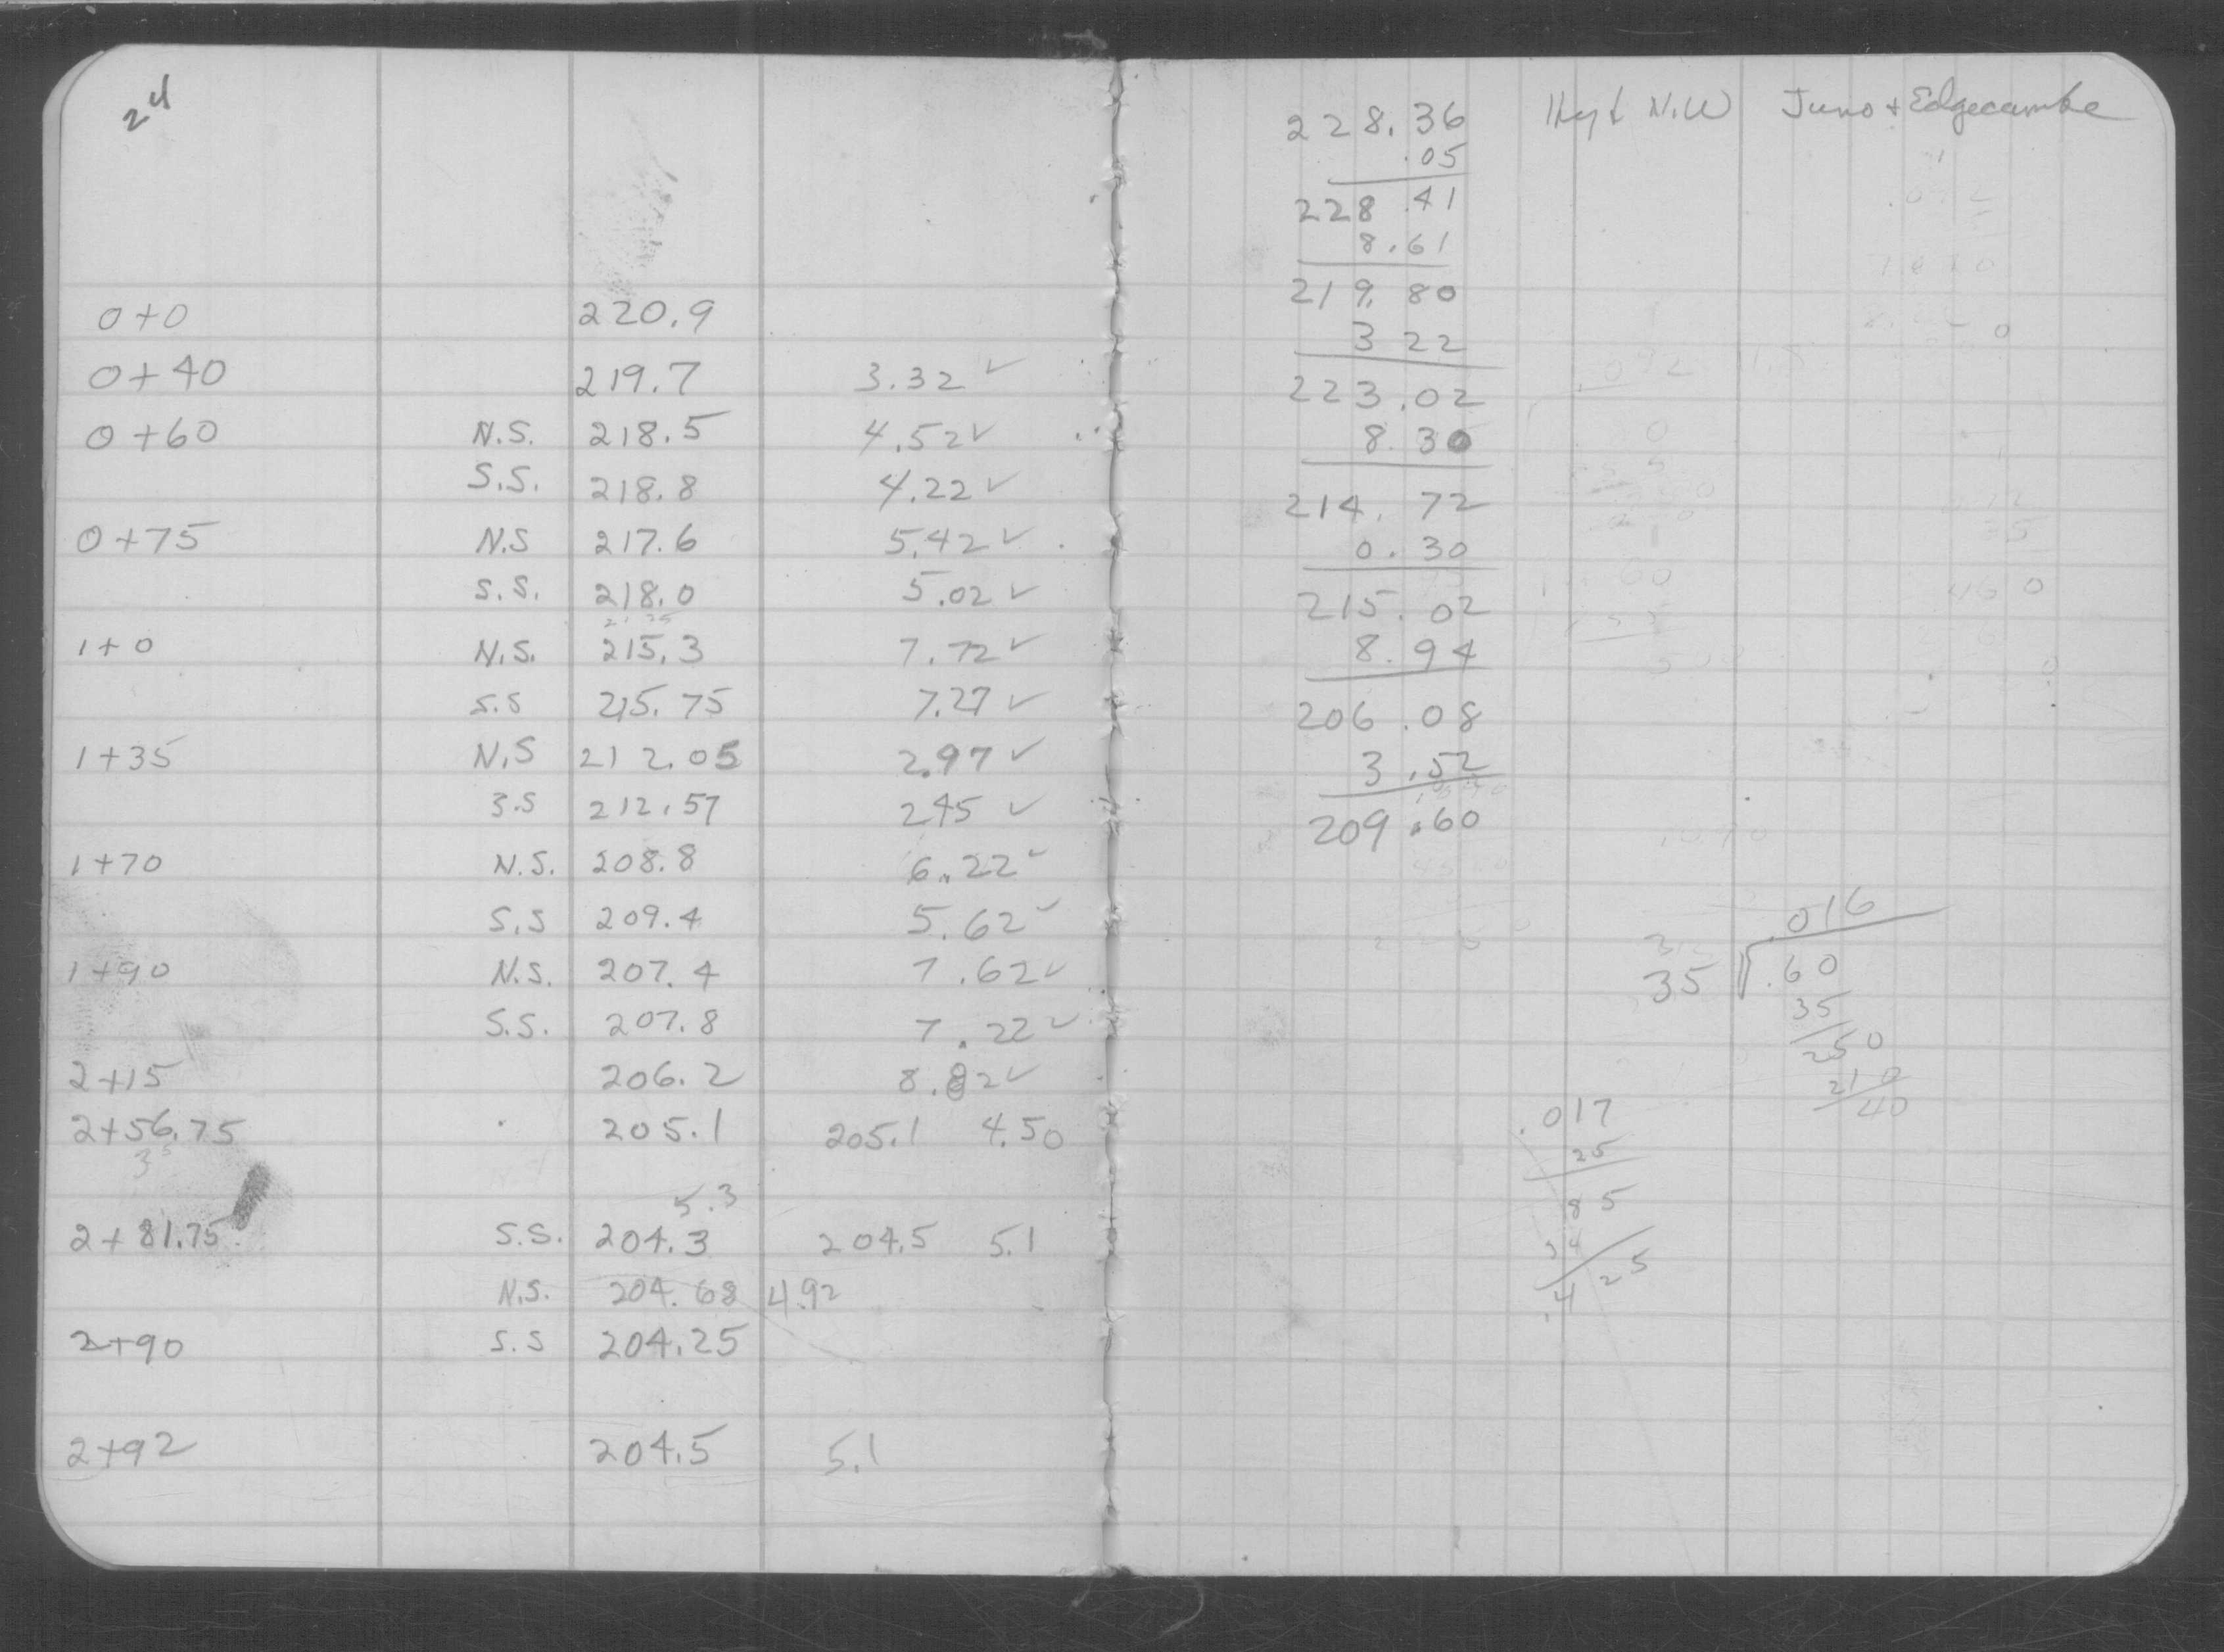 24
0+0 220.9
0+40 219.7 3.32 ✓
0+60 N.S. 218.5 4.52 ✓
S.S. 218.8 4.22 ✓
0+75 N.S 217.6 5.42 ✓
S.S. 218.0 5.02 ✓
1+0 N.S. 215.3 7.72 ✓
S.S 215.75 7.27 ✓
1+35 N.S 212.05 2.97 ✓
S.S 212.57 245 ✓
1+70 N.S. 208.8 6.22 ✓
S.S 209.4 5.62 ✓
1+90 N.S. 207.4 7.62 ✓
S.S. 207.8 7.22 ✓
2+15 206.2 8.82 ✓
2+56.75 205.1 205.1 4.50
5.3
2+81.75 S.S. 204.3 204.5 5.1
N.S. 204.68 4.92
2+90 S.S 204.25
2+92 204.5 5.1
228.36 N.W Juno + Edgecumbe
.05
228.41
8.61
219.80
3 22
223.02
8.30
214.72
0.30
215.02
8.94
206.08
3.52
209.60
.016
35 .60
35
250
210
40
.017
25
85
34
.425